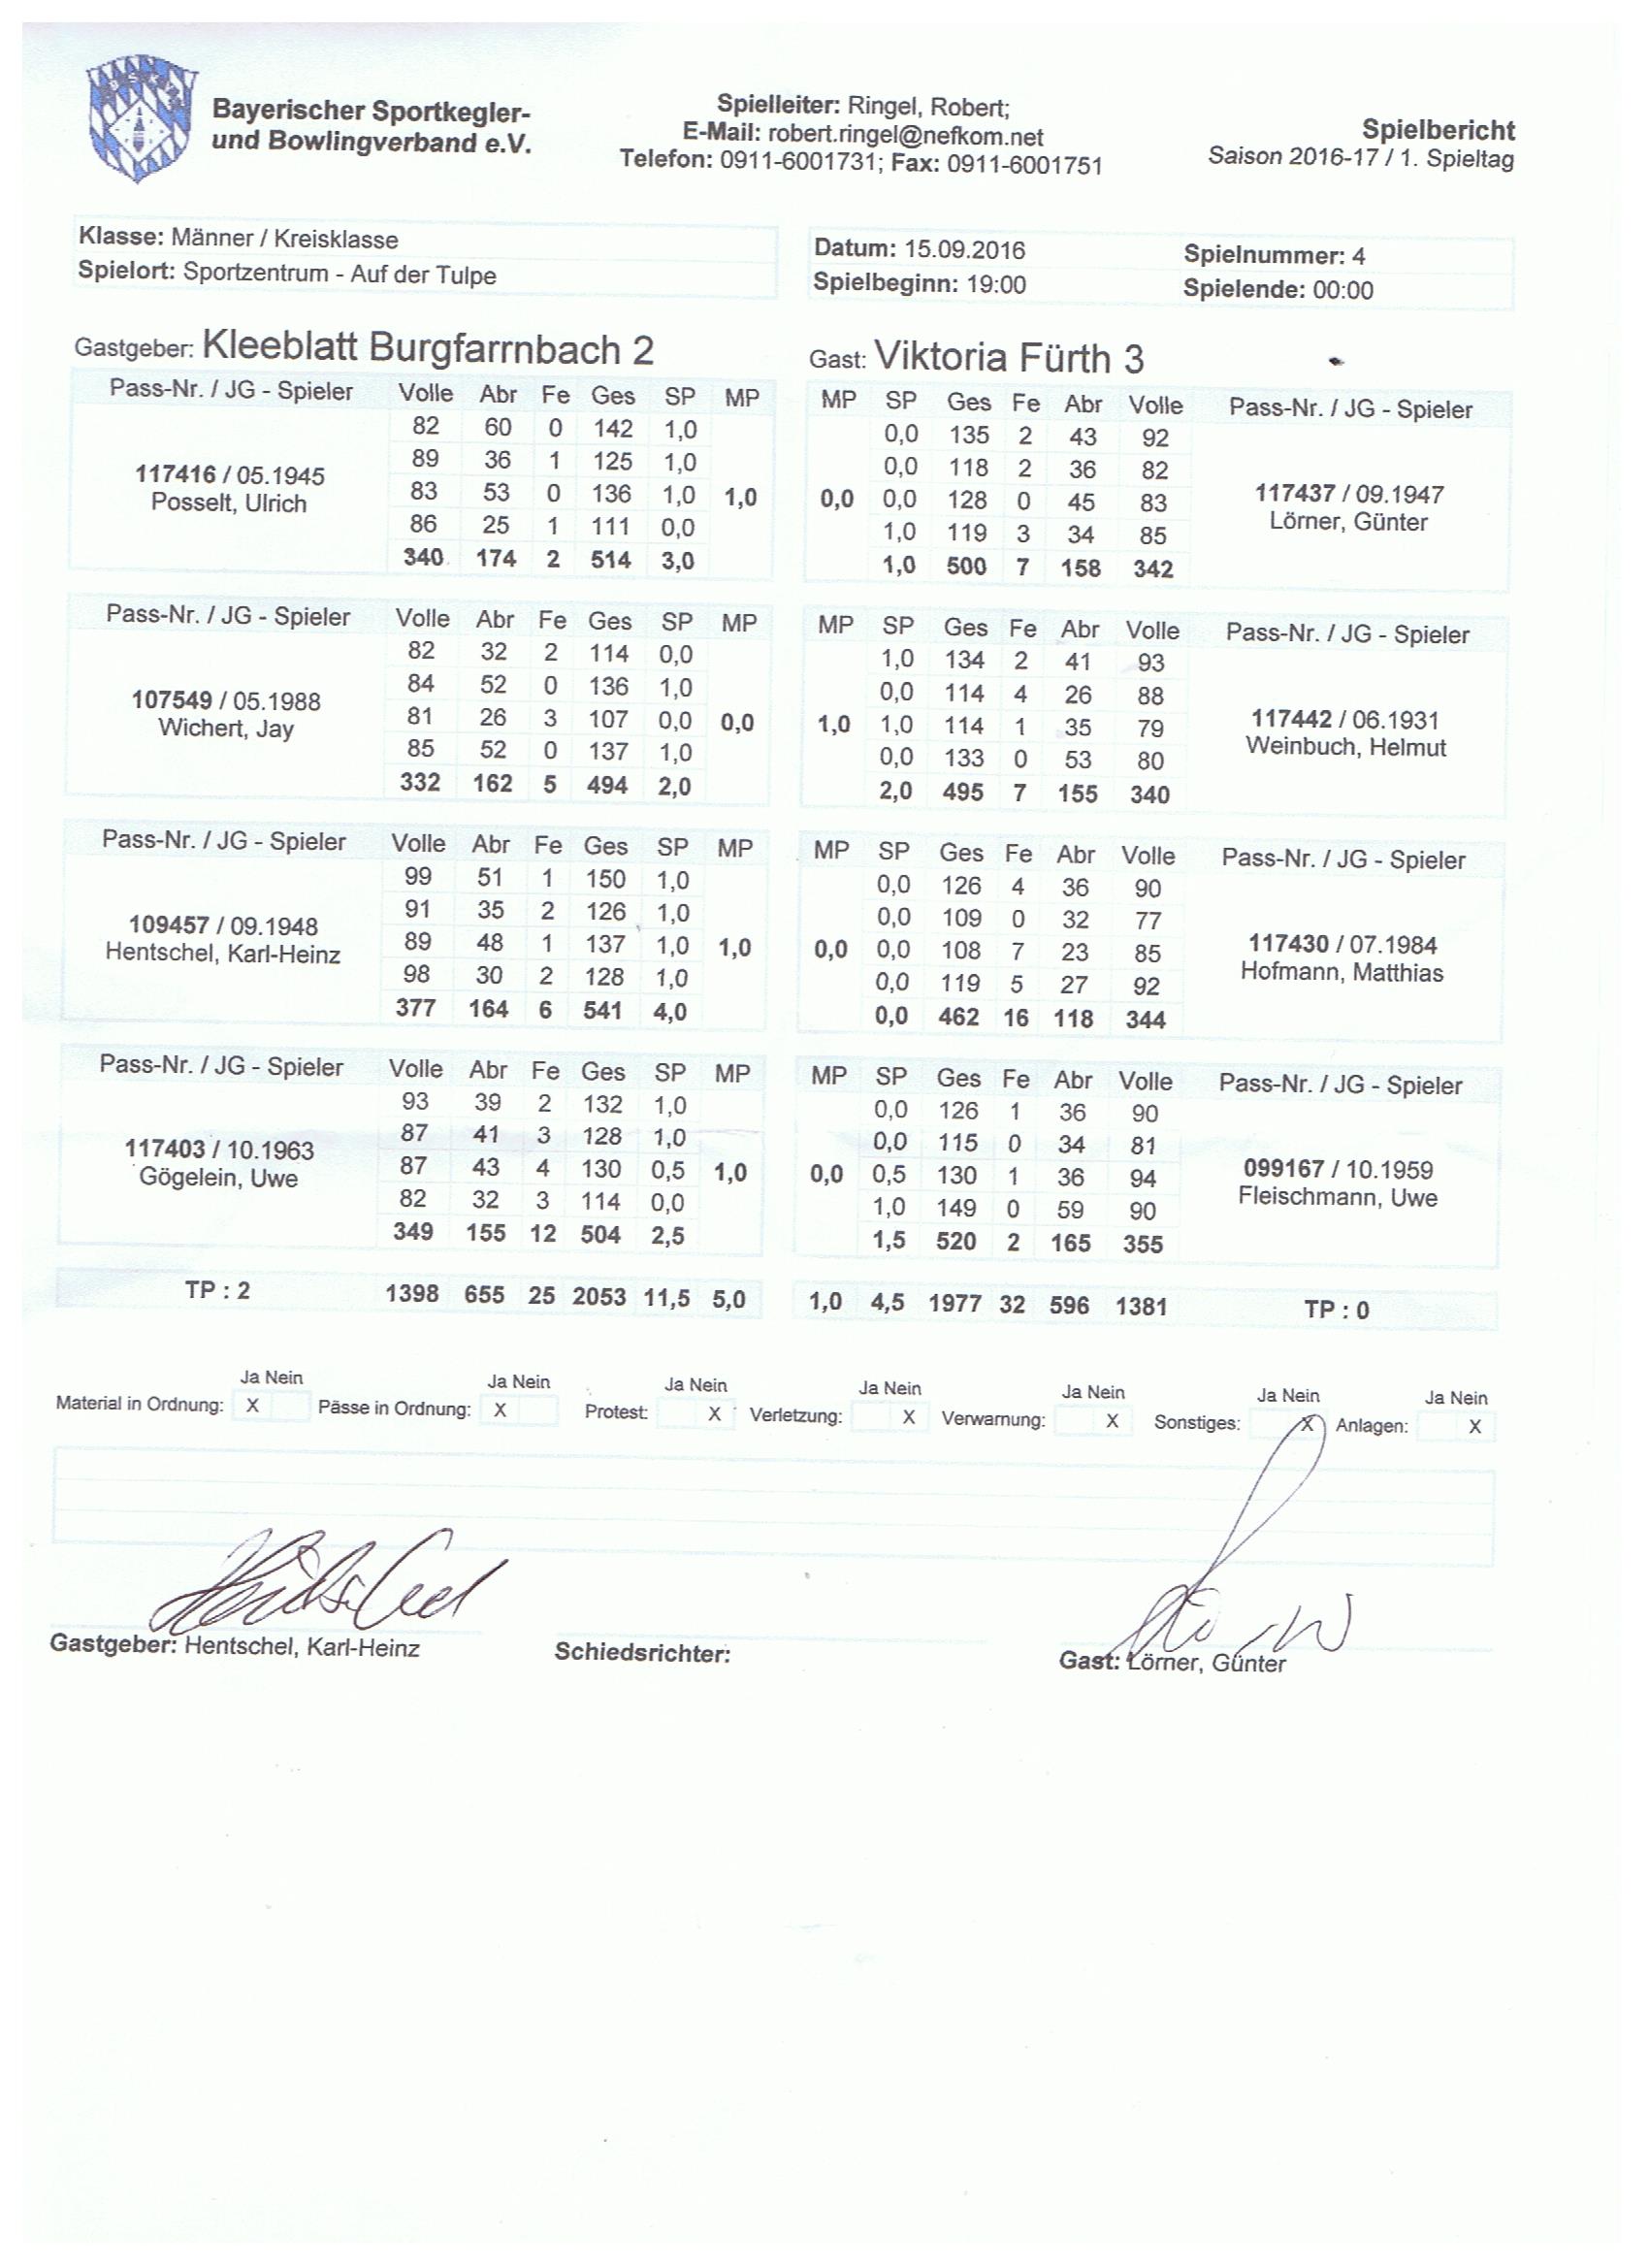 Bayerischer Sportkegler-
und Bowlingverband e.V.
Spielleiter: Ringel, Robert;
E-Mail: robert.ringel@nefkom.net
Telefon: 0911-6001731; Fax: 0911-6001751
Spielbericht
Saison 2016-17 / 1. Spieltag
Klasse: Männer / Kreisklasse
Spielort: Sportzentrum - Auf der Tulpe
Datum: 15.09.2016 Spielnummer: 4
Spielbeginn: 19:00 Spielende: 00:00
Gastgeber: Kleeblatt Burgfarrnbach 2
Gast: Viktoria Fürth 3
Pass-Nr. / JG - Spieler Volle Abr Fe Ges SP MP
82 60 0 142 1,0
89 36 1 125 1,0
117416 / 05.1945
Posselt, Ulrich
83 53 0 136 1,0 1,0
86 25 1 111 0,0
340 174 2 514 3,0
MP SP Ges Fe Abr Volle Pass-Nr. / JG - Spieler
0,0 135 2 43 92
0,0 118 2 36 82
0,0 0,0 128 0 45 83
117437 / 09.1947
Lörner, Günter
1,0 119 3 34 85
1,0 500 7 158 342
Pass-Nr. / JG - Spieler Volle Abr Fe Ges SP MP
82 32 2 114 0,0
84 52 0 136 1,0
107549 / 05.1988
Wichert, Jay
81 26 3 107 0,0 0,0
85 52 0 137 1,0
332 162 5 494 2,0
MP SP Ges Fe Abr Volle Pass-Nr. / JG - Spieler
1,0 134 2 41 93
0,0 114 4 26 88
1,0 1,0 114 1 35 79
117442 / 06.1931
Weinbuch, Helmut
0,0 133 0 53 80
2,0 495 7 155 340
Pass-Nr. / JG - Spieler Volle Abr Fe Ges SP MP
99 51 1 150 1,0
91 35 2 126 1,0
109457 / 09.1948
Hentschel, Karl-Heinz
89 48 1 137 1,0 1,0
98 30 2 128 1,0
377 164 6 541 4,0
MP SP Ges Fe Abr Volle Pass-Nr. / JG - Spieler
0,0 126 4 36 90
0,0 109 0 32 77
0,0 0,0 108 7 23 85
117430 / 07.1984
Hofmann, Matthias
0,0 119 5 27 92
0,0 462 16 118 344
Pass-Nr. / JG - Spieler Volle Abr Fe Ges SP MP
93 39 2 132 1,0
87 41 3 128 1,0
117403 / 10.1963
Gögelein, Uwe
87 43 4 130 0,5 1,0
82 32 3 114 0,0
349 155 12 504 2,5
MP SP Ges Fe Abr Volle Pass-Nr. / JG - Spieler
0,0 126 1 36 90
0,0 115 0 34 81
0,0 0,5 130 1 36 94
099167 / 10.1959
Fleischmann, Uwe
1,0 149 0 59 90
1,5 520 2 165 355
TP : 2 1398 655 25 2053 11,5 5,0
1,0 4,5 1977 32 596 1381 TP : 0
Ja Nein Ja Nein Ja Nein Ja Nein Ja Nein Ja Nein Ja Nein
Material in Ordnung: X Pässe in Ordnung: X Protest: X Verletzung: X Verwarnung: X Sonstiges: X Anlagen: X
Gastgeber: Hentschel, Karl-Heinz Schiedsrichter: Gast: Lörner, Günter